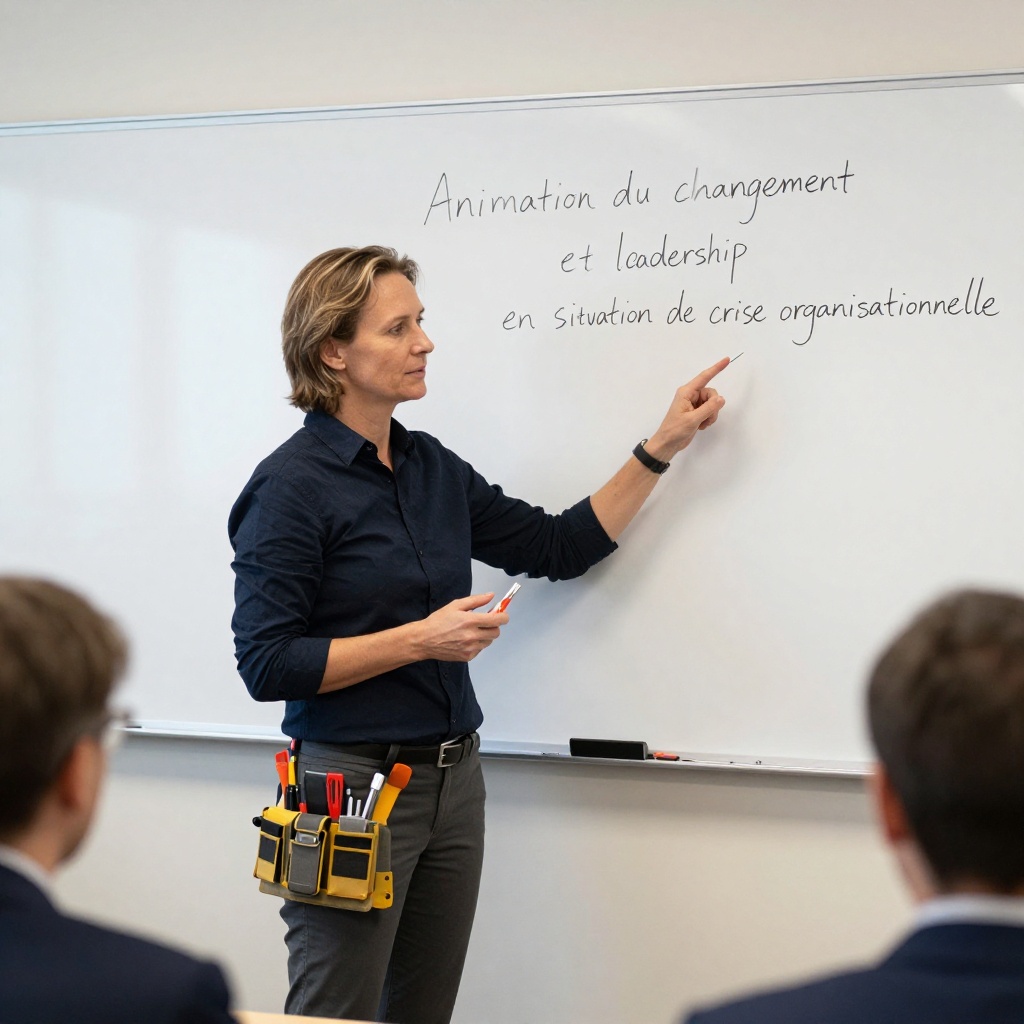 Animation du changement
et leadership
en situation de crise organisationnelle